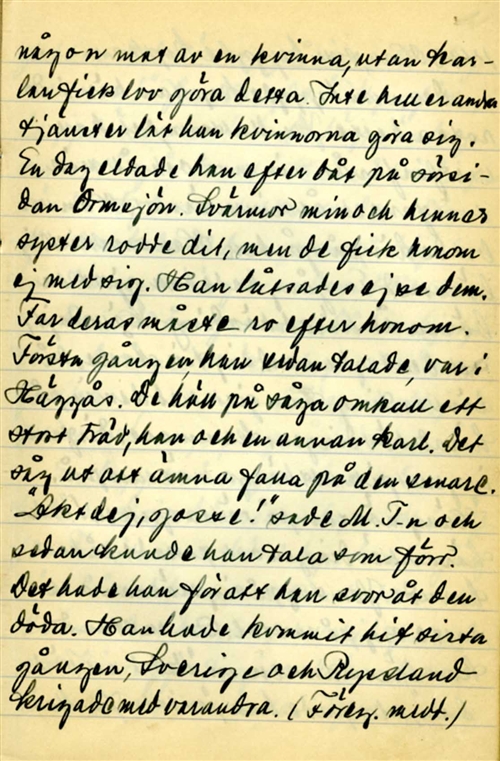 någon mat av en kvinna, utan kar-
len fick lov göra detta. Inte heller andra
tjänster lät han kvinnorna göra sig.
En dag eldade han efter båt på sörsi-
dan Ormsjön. Svärmor min och hennes
syster rodde dit, men de fick honom
ej med sig. Han låtsades ej se dem.
Far deras måste ro efter honom.
Första gången, han sedan talade, var i
Häggås. De höll på såga omkull ett
stort träd, han och en annan karl. Det
såg ut att ämna falla på den senare.
"Akt dej, gosse!" sade M. T-n och
sedan kunde han tala som förr.
Det hade han för att han svor åt den
döda. Han hade kommit hit sista
gången, Sverige och Ryssland
krigade med varandra. (Föreg. medd.)